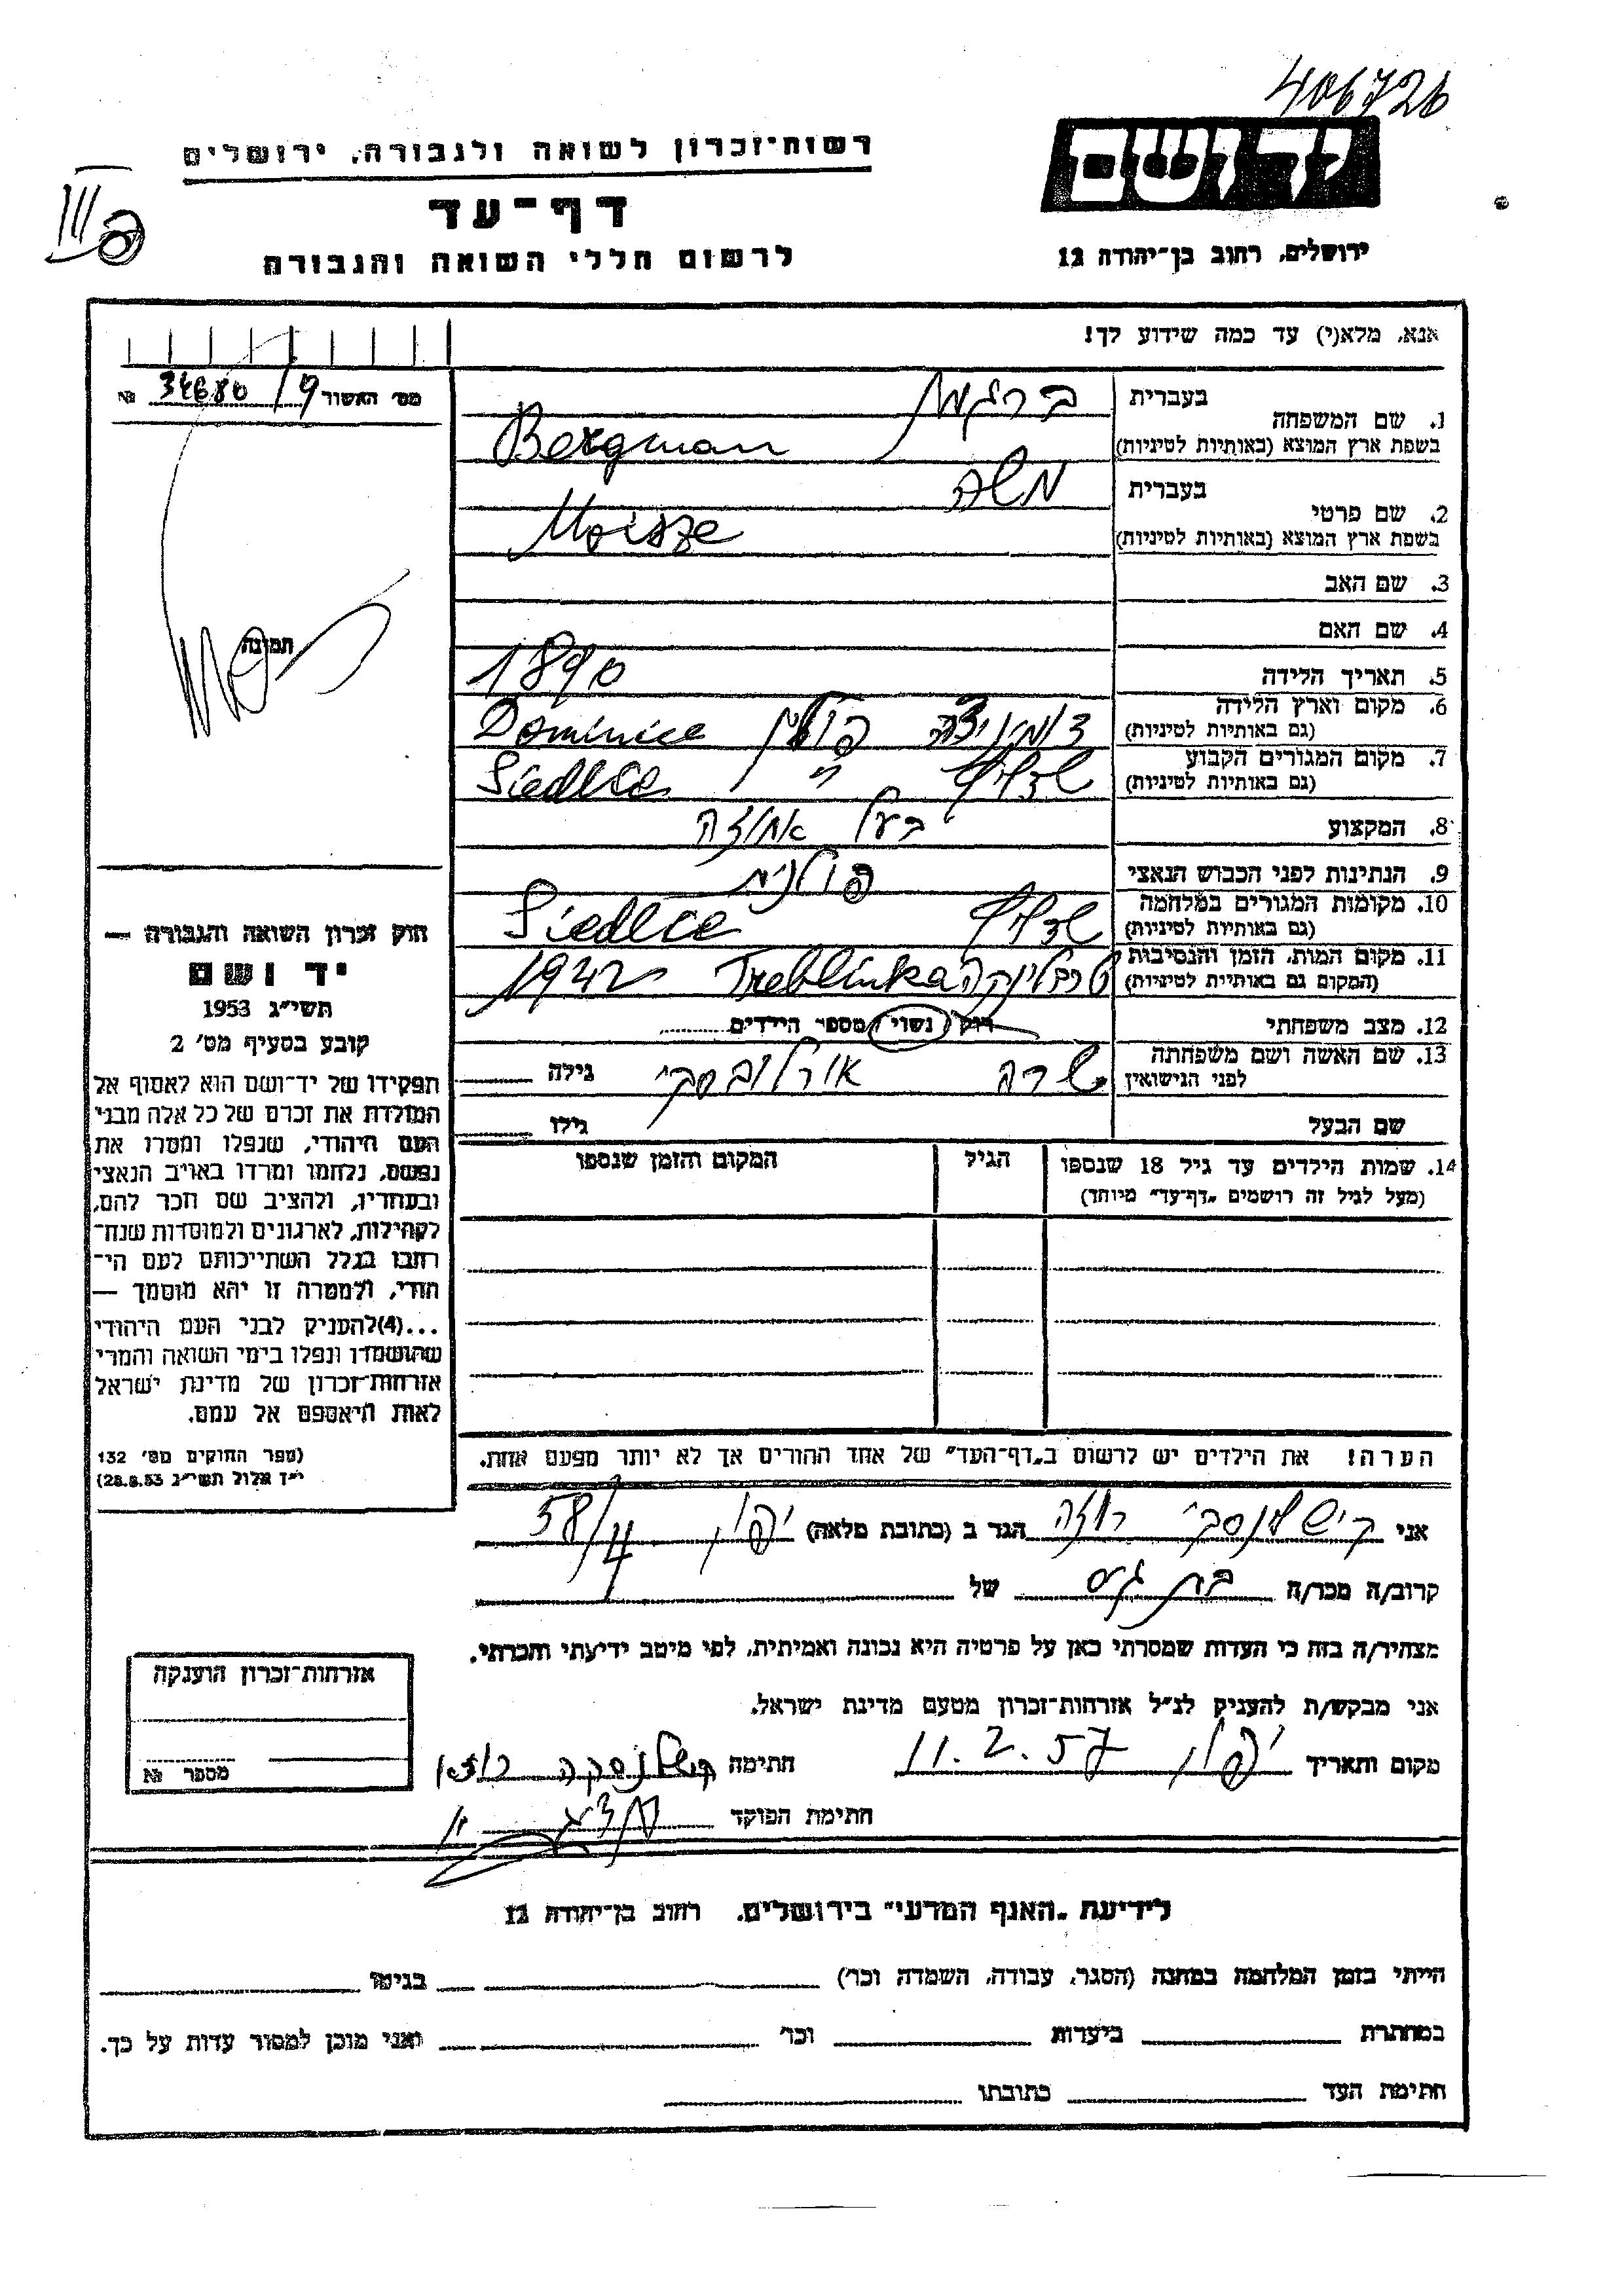 406726
יד ושם
רשות־זכרון לשואה ולגבורה, ירושלים
דף־עד
לרשום חללי השואה והגבורה
ירושלים, רחוב בן־יהודה 12
III
אנא, מלא(י) עד כמה שידוע לך!
מס' האשור 34680/9 №
1. שם המשפחה
בעברית ברגמן
בשפת ארץ המוצא (באותיות לטיניות) Bergman
2. שם פרטי
בעברית משה
בשפת ארץ המוצא (באותיות לטיניות) Moisze
3. שם האב
4. שם האם
תמונה
5. תאריך הלידה 1890
6. מקום וארץ הלידה
(גם באותיות לטיניות) פולין Dominice
7. מקום המגורים הקבוע
(גם באותיות לטיניות) שדליץ " Siedlce
8. המקצוע בעל
9. הנתינות לפני הכבוש הנאצי פולנית
10. מקומות המגורים במלחמה
(גם באותיות לטיניות) שדליץ Siedlce
11. מקום המות, הזמן והנסיבות
(המקום גם באותיות לטיניות) טרבלינקה Treblinka 1942
12. מצב משפחתי רוק / נשוי / מספר הילדים
13. שם האשה ושם משפחתה
לפני הנישואין שרה אורלובסקי גילה
שם הבעל גילו
14. שמות הילדים עד גיל 18 שנספו
(מעל לגיל זה רושמים "דף־עד" מיוחד)
הגיל
המקום והזמן שנספו
חוק זכרון השואה והגבורה —
יד ושם
תשי"ג 1953
קובע בסעיף מס' 2
תפקידו של יד־ושם הוא לאסוף אל
המולדת את זכרם של כל אלה מבני
העם היהודי, שנפלו ומסרו את
נפשם, נלחמו ומרדו באויב הנאצי
ובעוזריו, ולהציב שם וזכר להם,
לקהילות, לארגונים ולמוסדות שנח־
רבו בגלל השתייכותם לעם הי־
הודי, ולמטרה זו יהא מוסמך —
...(4)להעניק לבני העם היהודי
שהושמדו ונפלו בימי השואה והמרי
אזרחות־זכרון של מדינת ישראל
לאות היאספם אל עמם.
(ספר החוקים מס' 132
י"ד אלול תשי"ג 28.8.53)
הערה! את הילדים יש לרשום ב"דף־העד" של אחד ההורים אך לא יותר מפעם אחת.
אני קישלנסקי רוזה הגר ב (כתובת מלאה) יפו 58/4
קרוב/ה מכר/ה בת גיס של
מצהיר/ה בזה כי העדות שמסרתי כאן על פרטיה היא נכונה ואמיתית, לפי מיטב ידיעתי והכרתי.
אני מבקש/ת להעניק לנ"ל אזרחות־זכרון מטעם מדינת ישראל.
מקום ותאריך יפו 11.2.57 חתימה קישלנסקה רוזה
חתימת הפוקד
אזרחות־זכרון הוענקה
מספר №
לידיעת "האגף המדעי" בירושלים, רחוב בן־יהודה 12
הייתי בזמן המלחמה במחנה (הסגר, עבודה, השמדה וכו') בגיטו
במחתרת ביערות וכו' ואני מוכן למסור עדות על כך.
חתימת העד כתובתו